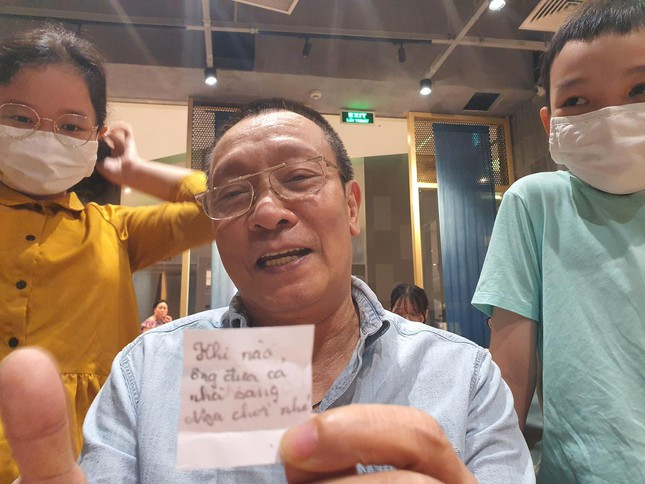 EXIT
Khi nào
ông đưa cả
nhà sang
Nga chơi nhé